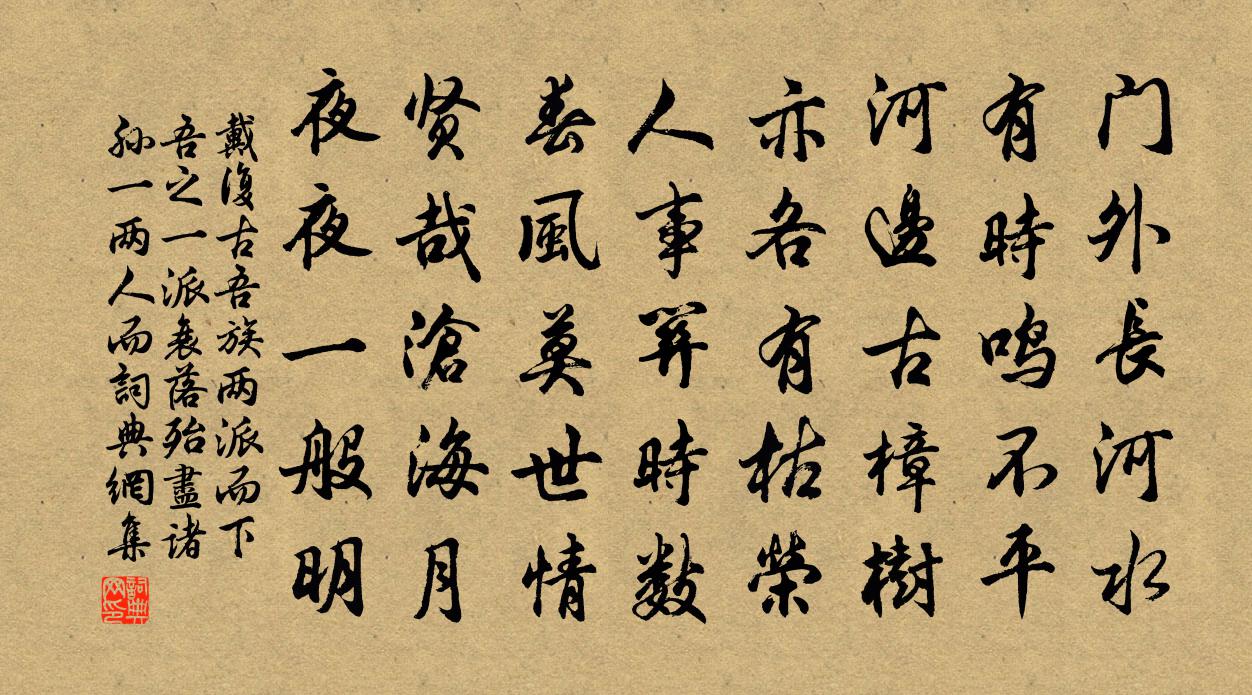 门外長河水
有時鸣不平
河邊古樟樹
亦各有枯榮
人事關時數
春風莫世情
贤哉滄海月
夜夜一般明
戴復古吾族两派而下
吾之一派衰落殆盡诸
孙一两人而詞典網集
詞典网印